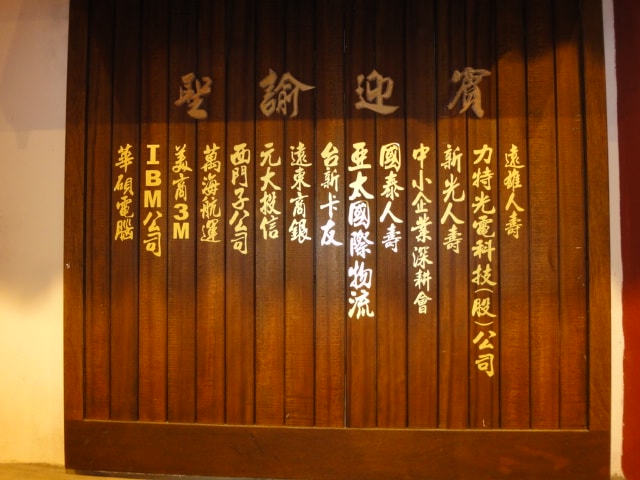 聖諭迎賓
遠雄人壽
力特光電科技(股)公司
新光人壽
中小企業深耕會
國泰人壽
亞太國際物流
台新卡友
遠東商銀
元大投信
西門子公司
萬海航運
美商3M
IBM公司
華碩電腦